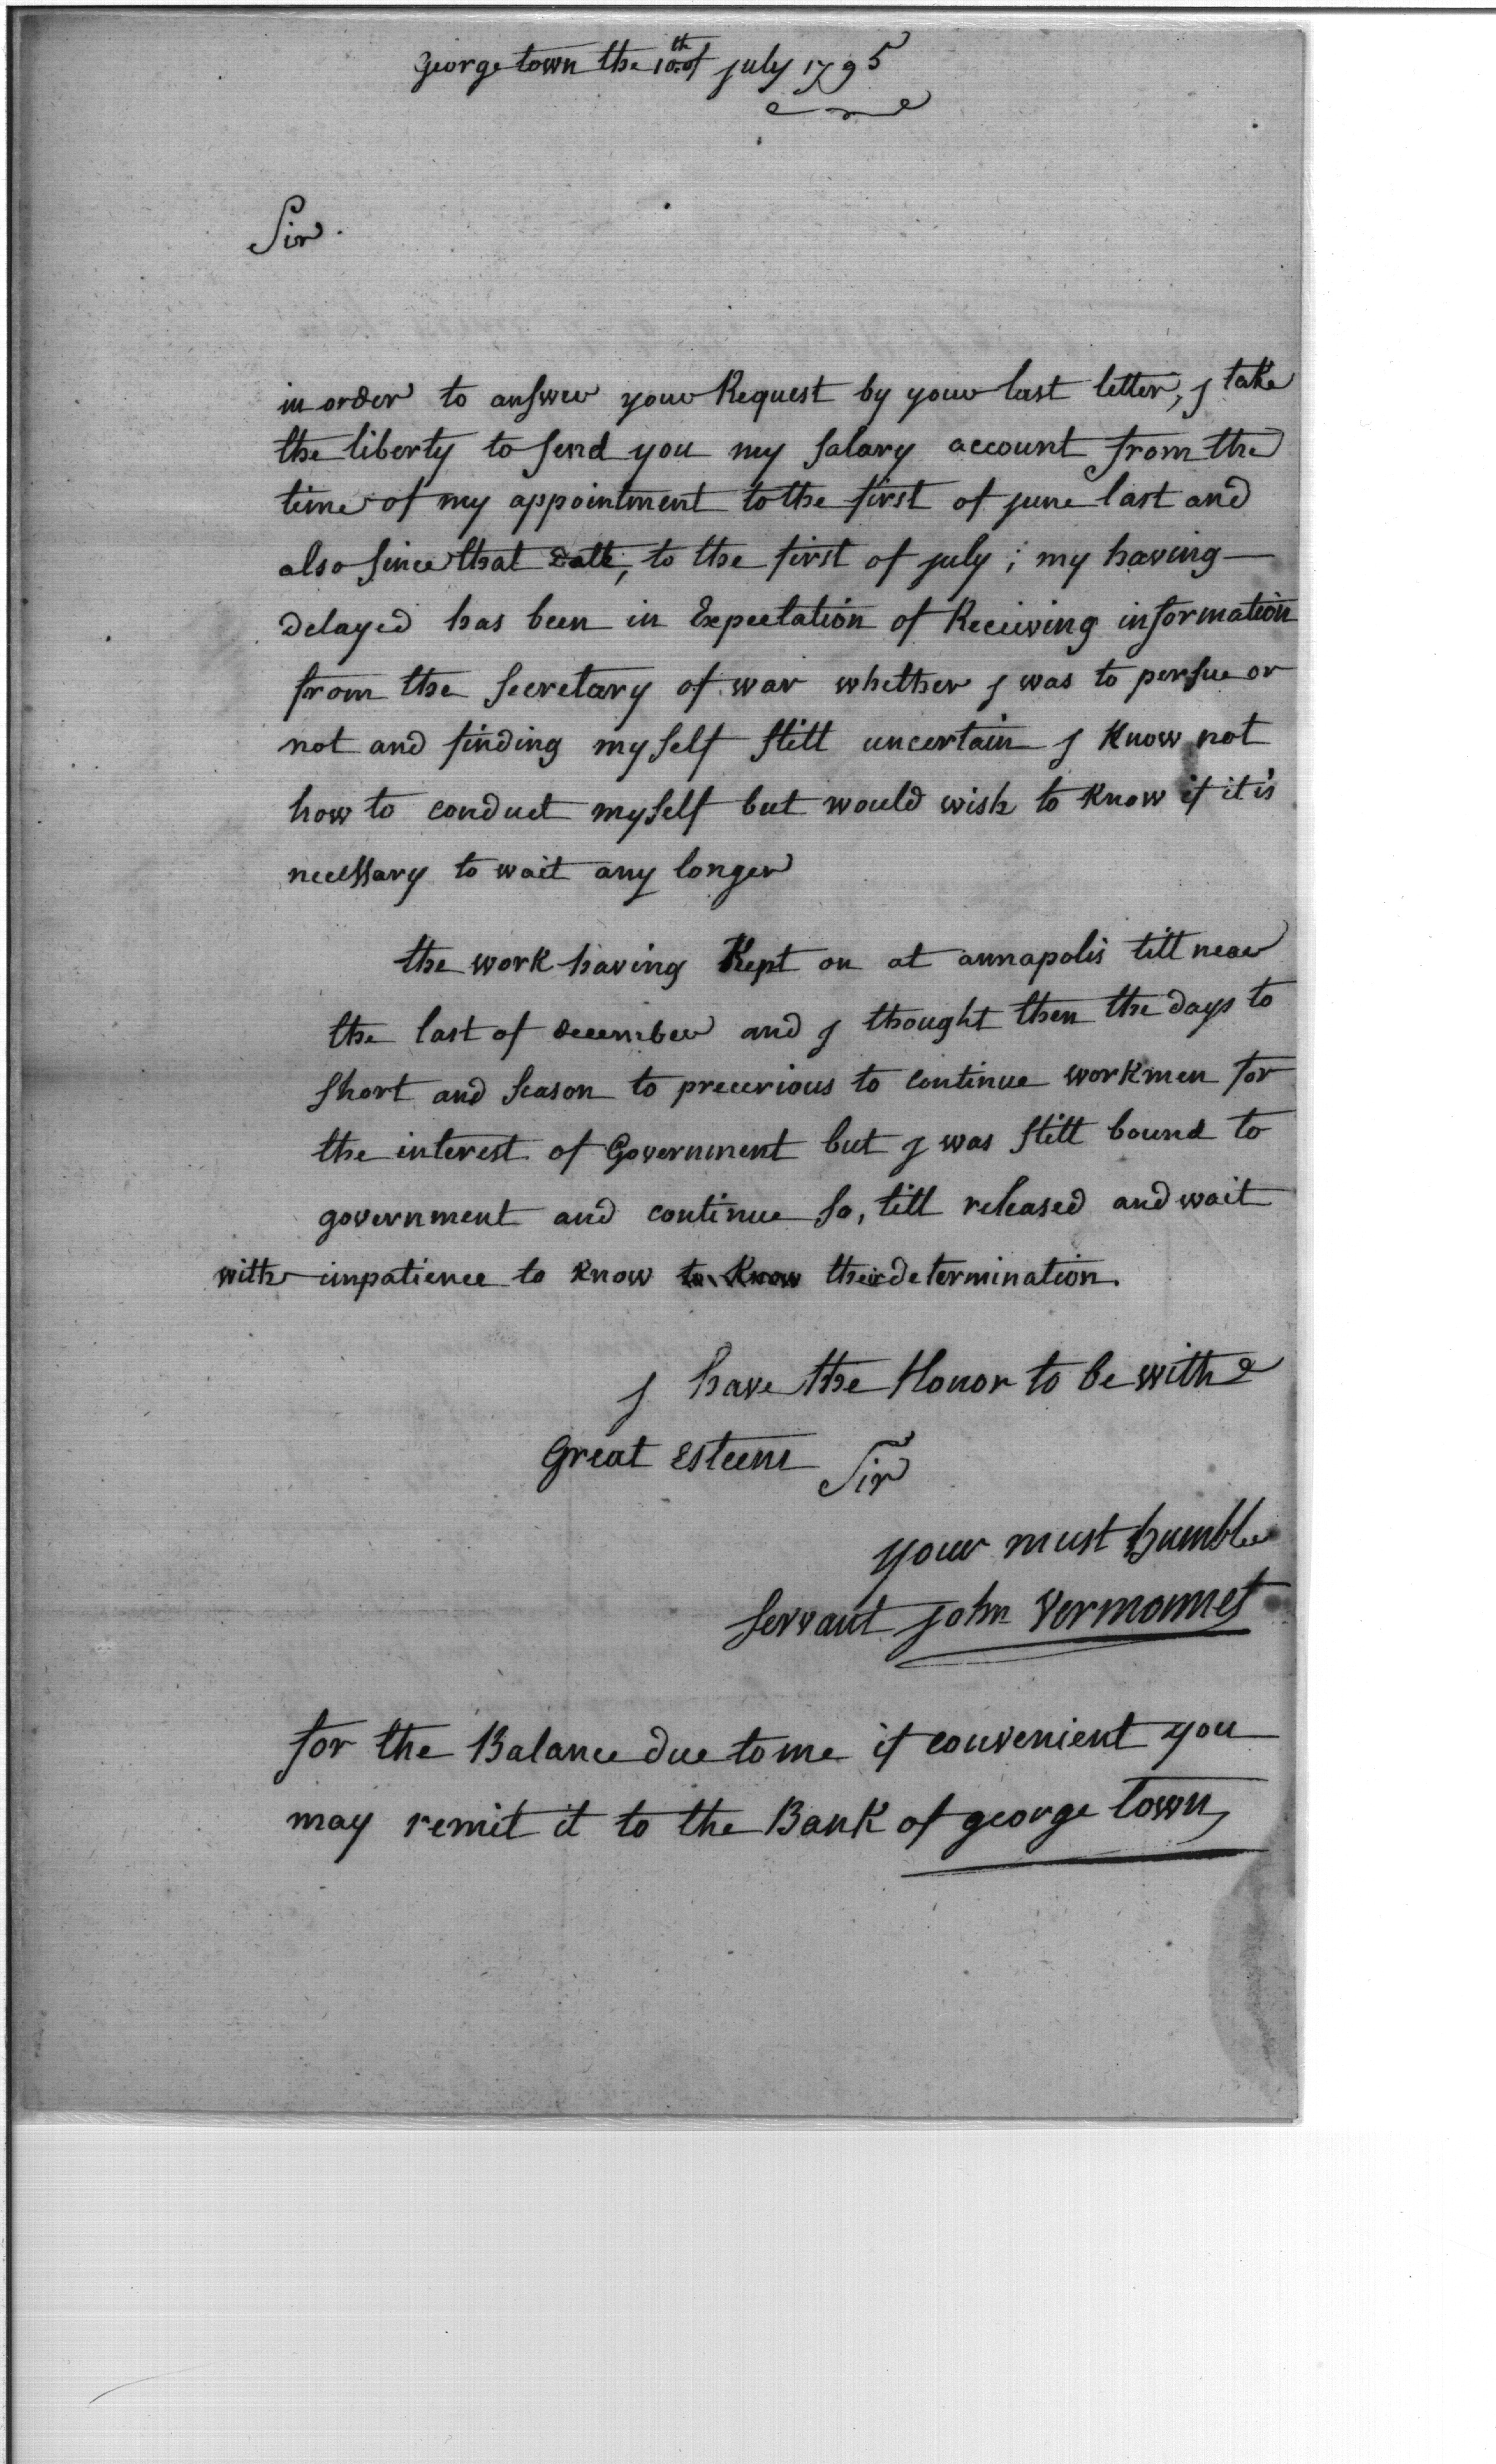 george town the 10th of july 1795
Sir.
in order to answer your Request by your last letter, j take
the liberty to send you my salary account from the
time of my appointment to the first of june last and
also since that date, to the first of july; my having
delayed has been in Expectation of Receiving information
from the secretary of war whether j was to persue or
not and finding myself still uncertain j Know not
how to conduct myself but would wish to Know if it is
necessary to wait any longer
the work having Kept on at annapolis till near
the last of december and j thought then the days to
short and season to precerious to continue workmen for
the interest of Government but j was still bound to
government and continue so, till released and wait
with impatience to Know to Know their determination.
j have the Honor to be with
Great Esteem Sir
your must humble
servant john Vermonnet
for the Balance due to me if convenient you
may remit it to the Bank of george town,